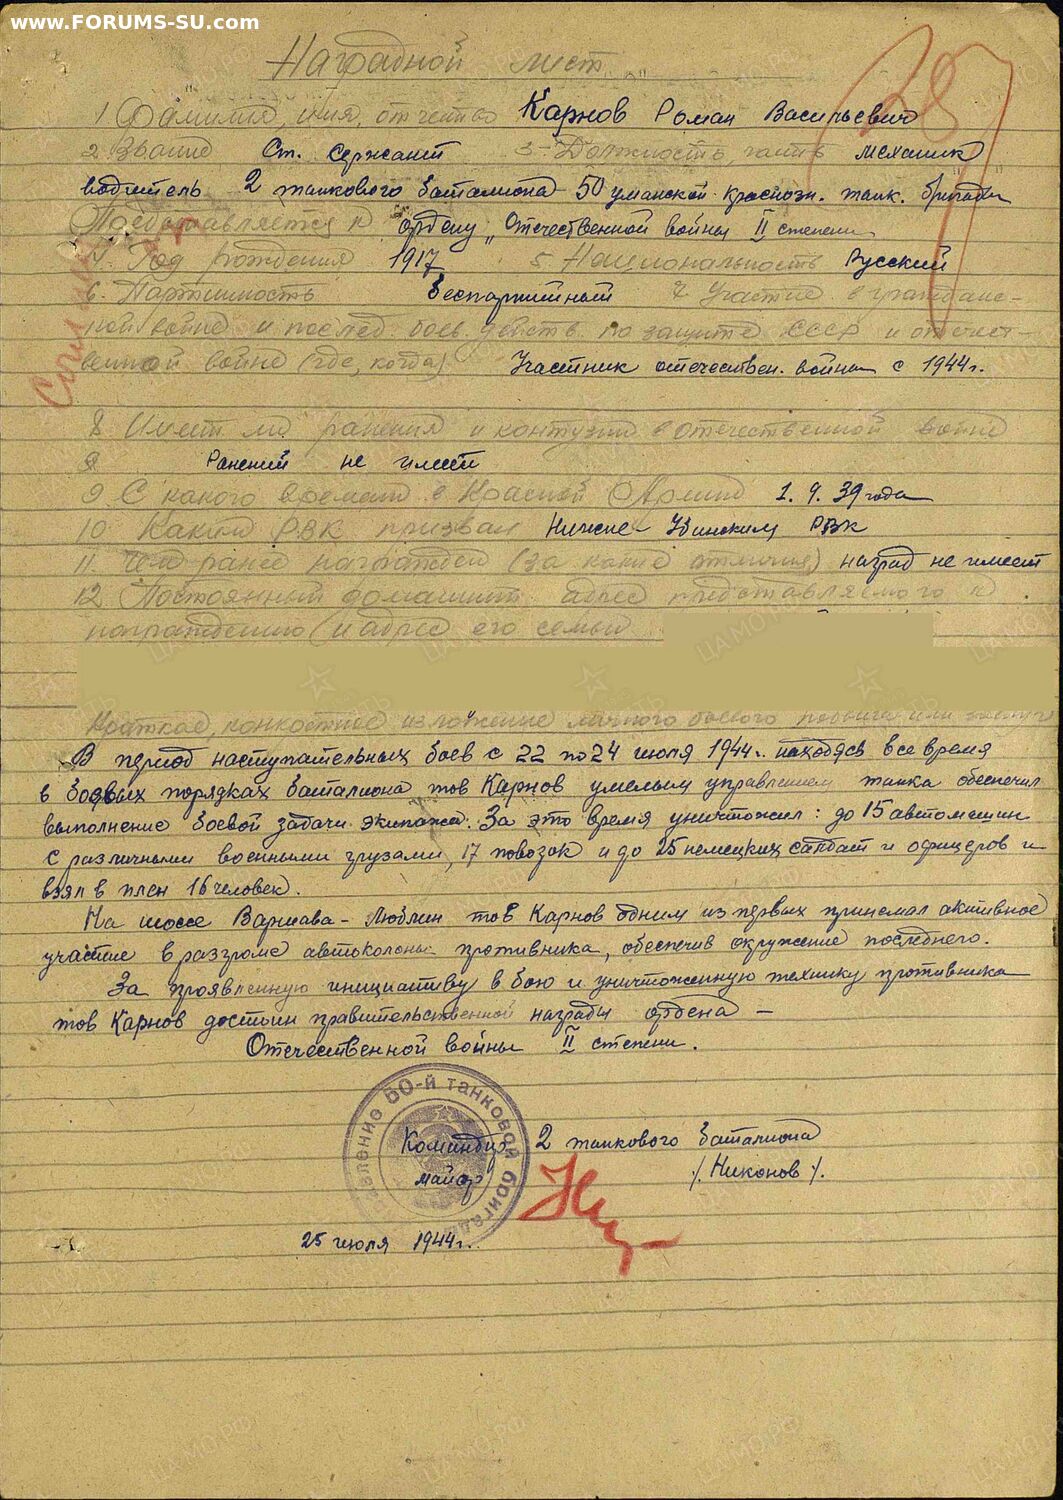 www.FORUMS-SU.com
Наградной лист
1 Фамилия, имя, отчество Карнов Роман Васильевич
2 Звание Ст. сержант 3 Должность, часть механик
водитель 2 танкового баталиона 50 уманской краснозн. танк. бригады
Представляется к ордену „Отечественной войны II степени
4. Год рождения 1917 5. Национальность Русский
6. Партийность беспартийный 7 Участие в гражданс-
ной войне и послед. боев. действ. по защите СССР и отечест-
венной войне (где, когда) Участник отечествен. войны с 1944г.
8 Имеет ли ранения и контузии в отечественной войне
9 Ранений не имеет
9 С какого времени в Красной Армии 1. 9. 39 года
10 Каким РВК призван Нижне- РВК
11. Чем ранее награжден (за какие отличия) наград не имеет
12 Постоянный домашний адрес представляемого к
награждению (и адрес его семьи
Краткое, конкретное изложение личного боевого подвига или заслуг
В период наступательных боев с 22 по 24 июля 1944г. находясь все время
в боевых порядках баталиона тов Карнов умелым управлением танка обеспечил
выполнение боевой задачи экипажа. За это время уничтожил: до 15 автомашин
с различными военными грузами, 17 повозок и до 25 немецких салдат и офицеров и
взял в плен 16 человек.
На шоссе Варшава - Люблин тов Карнов одним из первых принемал активное
участие в разгроме автоколоны противника, обеспечив окружение последнего.
За проявленную инициативу в бою и уничтоженную технику противника
тов Карнов достоин правительственной награды ордена -
Отечественной войны II степени.
50-й танковой бригады
Командир 2 танкового баталиона
майор /. Никонов /.
25 июля 1944г.